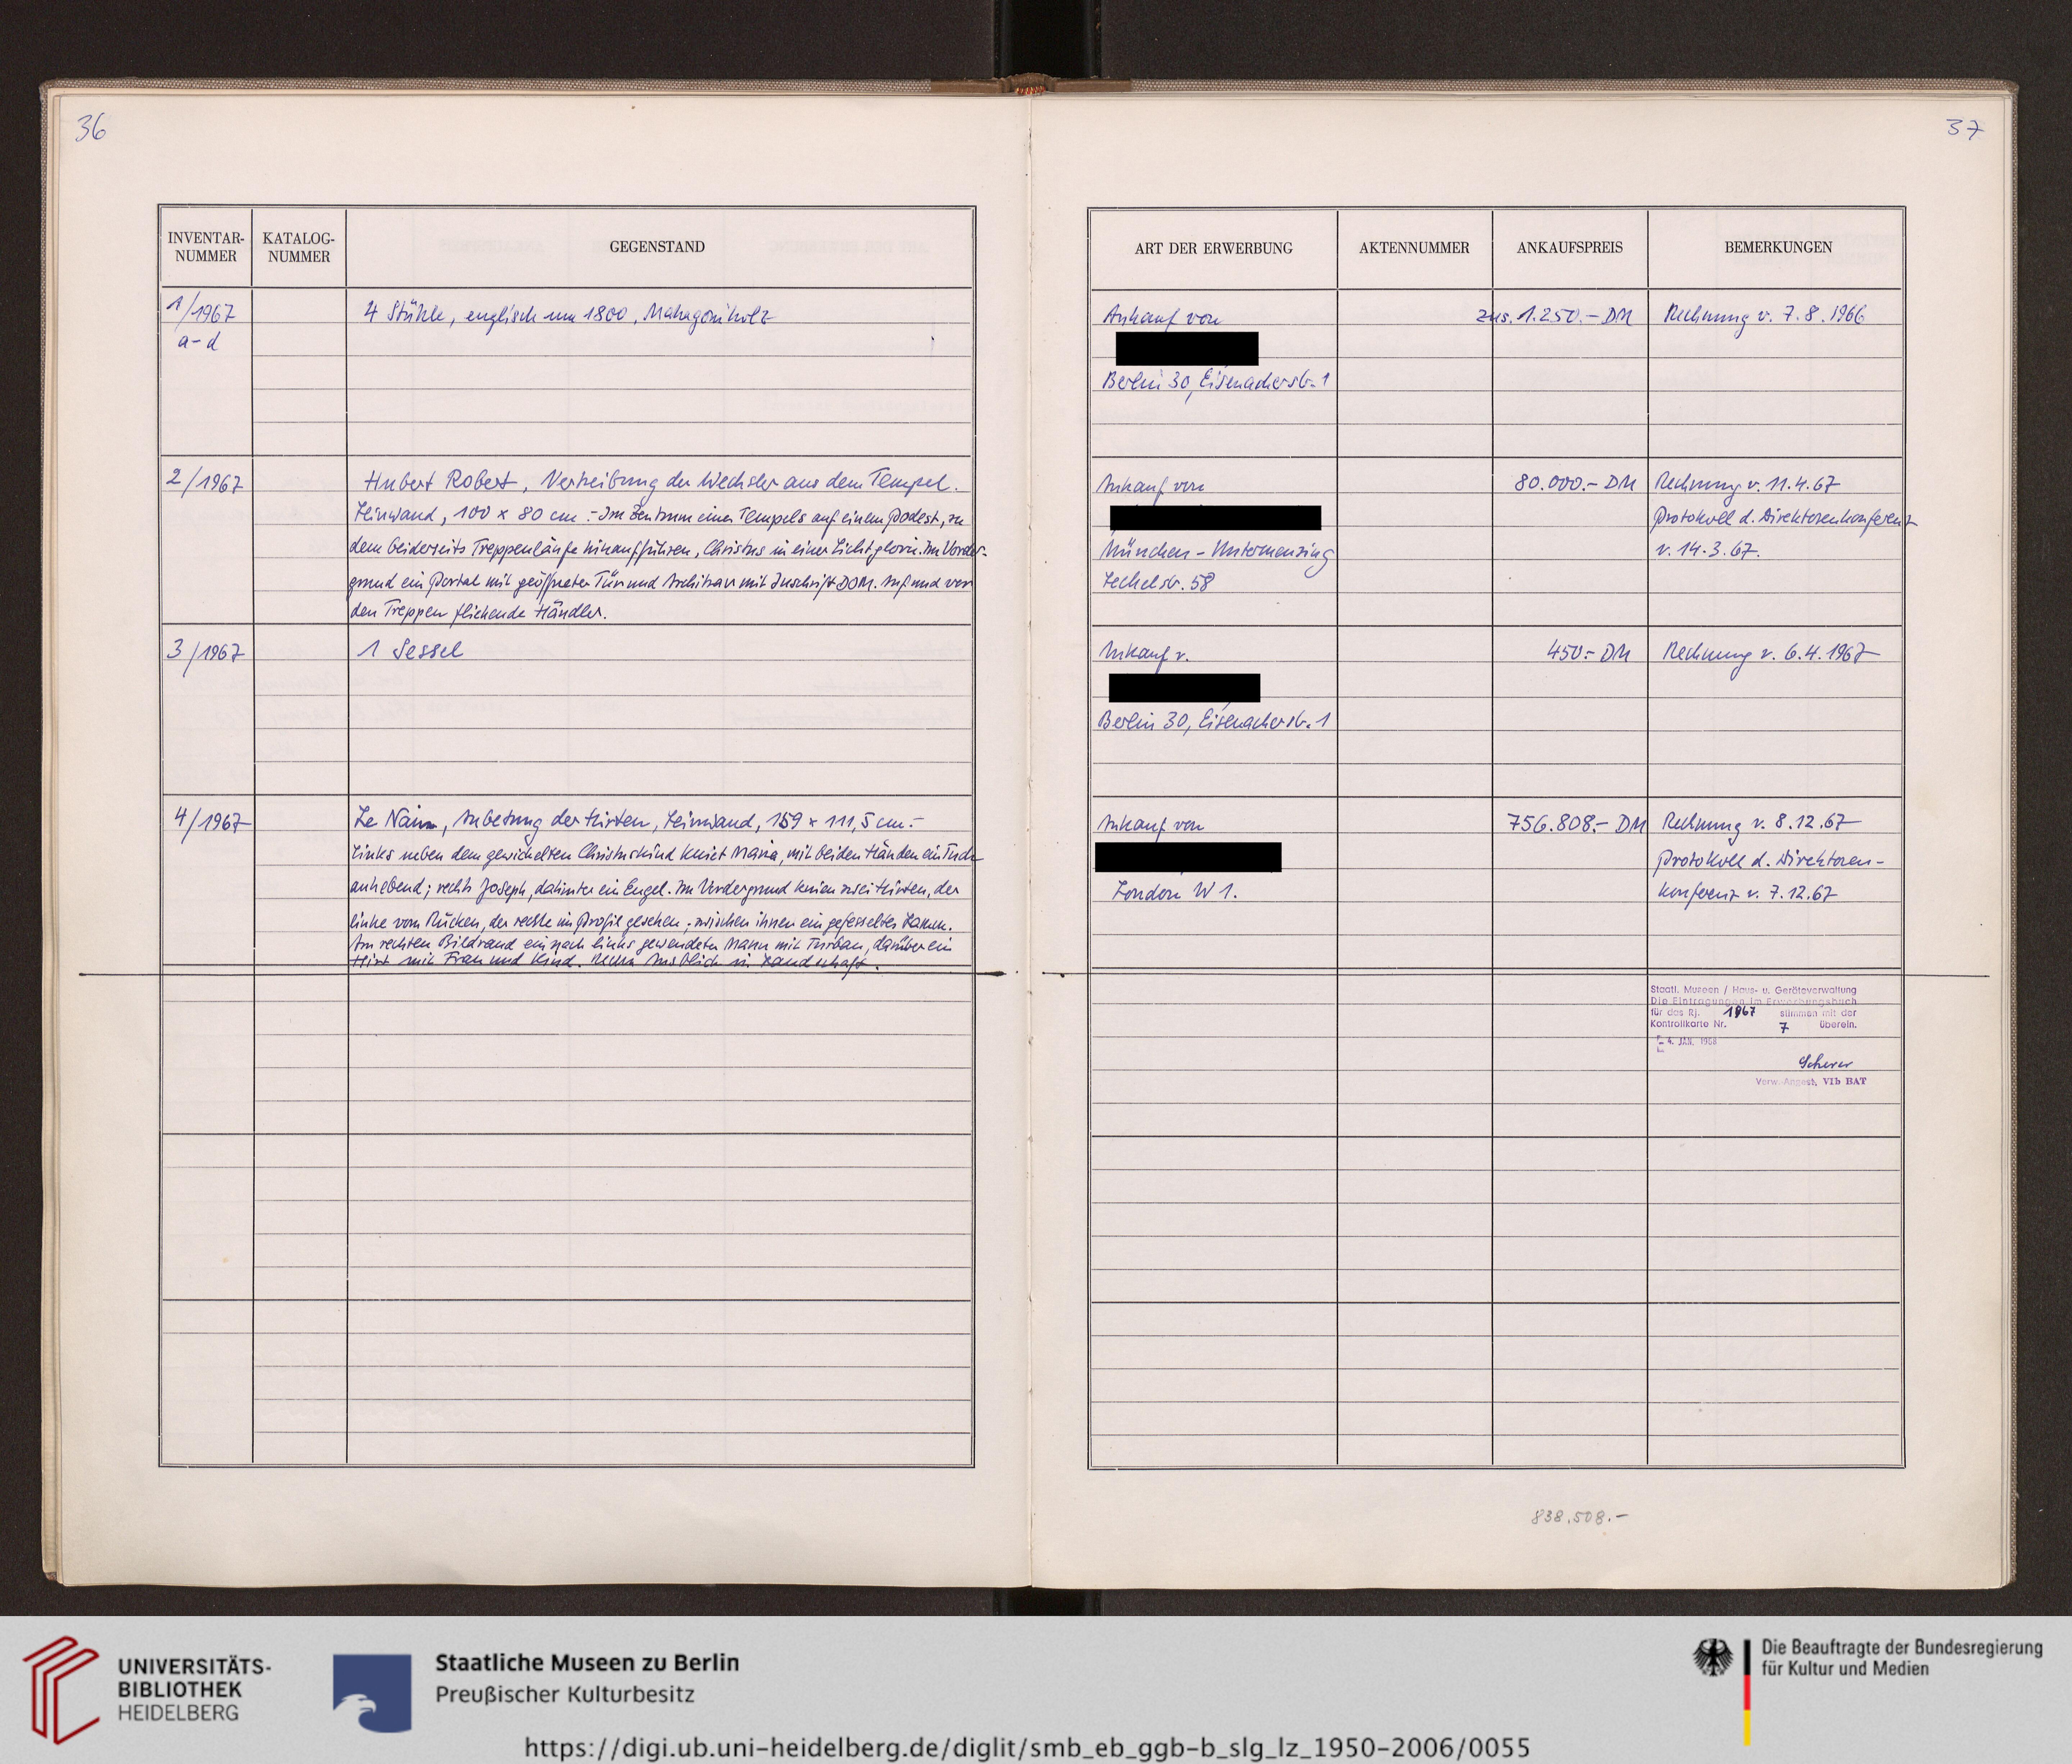 36
INVENTAR-
NUMMER
KATALOG-
NUMMER
GEGENSTAND
1/1967
a-d
4 Stühle, englisch um 1800, Mahagoniholz
2/1967
Hubert Robert, Vertreibung der Wechsler aus dem Tempel.
Leinwand, 100 x 80 cm.- Im Zentrum eines Tempels auf einem Podest, zu
dem beiderseits Treppenläufe hinaufführen, Christus in einer Lichtglorie. Im Vorder-
grund ein Portal mit geöffneter Tür und Architrav mit Inschrift DOM. Auf und vor
den Treppen fliehende Händler.
3/1967
1 Sessel
4/1967
Le Nain, Anbetung der Hirten, Leinwand, 159 x 111,5 cm.-
Links neben dem gewickelten Christuskind kniet Maria, mit beiden Händen ein Tuch
anhebend; rechts Joseph, dahinter ein Engel. Im Vordergrund knien zwei Hirten, der
linke vom Rücken, der rechte im Profil gesehen - zwischen ihnen ein gefesseltes Lamm.
Am rechten Bildrand ein nach links gewendeter Mann mit Turban, darüber ein
Hirt mit Frau und Kind. Rechts Ausblick in Landschaft.
37
ART DER ERWERBUNG
AKTENNUMMER
ANKAUFSPREIS
BEMERKUNGEN
Ankauf von
Berlin 30, Eisenacherstr. 1
zus. 1.250.- DM
Rechnung v. 7.8.1966
Ankauf von
München - Untermenzing
Lechelstr. 58
80.000.- DM
Rechnung v. 11.4.67
Protokoll d. Direktorenkonferenz
v. 14.3.67.
Ankauf v.
Berlin 30, Eisenacherstr. 1
450.- DM
Rechnung v. 6.4.1967
Ankauf von
London W 1.
756.808.- DM
Rechnung v. 8.12.67
Protokoll d. Direktoren-
konferenz v. 7.12.67
Staatl. Museen / Haus- u. Geräteverwaltung
Die Eintragungen im Erwerbungsbuch
für das Rj. 1967 stimmen mit der
Kontrollkarte Nr. 7 überein.
4. JAN. 1968
Scherer
Verw.-Angest. VIb BAT
838.508.-
UNIVERSITÄTS-
BIBLIOTHEK
HEIDELBERG
Staatliche Museen zu Berlin
Preußischer Kulturbesitz
Die Beauftragte der Bundesregierung
für Kultur und Medien
https://digi.ub.uni-heidelberg.de/diglit/smb_eb_ggb-b_slg_lz_1950-2006/0055